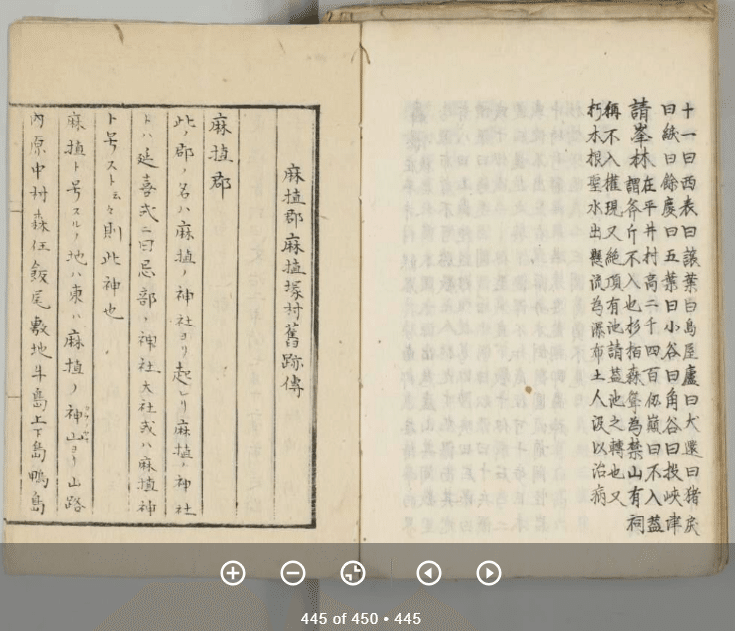 十一曰西表曰譲葉白島屋盧曰犬還曰猪戻
曰紙曰餘慶曰五葉曰小谷曰角谷曰投峡津
請峯林在平井村高二千四百仭巓曰不入蓋
謂斧斤不入也杉栢森聳為禁山有祠
稱不入権現又絶頂有池請蓋池之轉也又
朽木根聖水出懸流為瀑布土人汲以治病
麻植郡麻植塚村舊跡傳
麻植郡
此ノ郡ノ名ハ麻植ノ神社ヨリ起レリ麻植ノ神社
トハ延喜式ニ曰忌部ノ神社大社或ハ麻植神
ト号スト云々則此神也
麻植ト号スルノ地ハ東ハ麻植ノ神山ヨリ山路
内原中村森任飯尾敷地牛島上下島鴨島
445 of 450 • 445